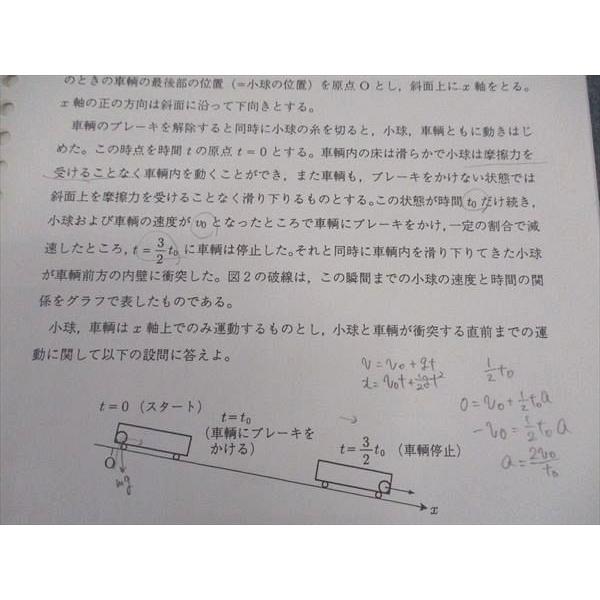 のときの車輌の最後部の位置（＝小球の位置）を原点Oとし，斜面上にx軸をとる。
x軸の正の方向は斜面に沿って下向きとする。
車輌のブレーキを解除すると同時に小球の糸を切ると，小球，車輌ともに動きはじ
めた。この時点を時間tの原点t＝0とする。車輌内の床は滑らかで小球は摩擦力を
受けることなく車輌内を動くことができ，また車輌も，ブレーキをかけない状態では
斜面上を摩擦力を受けることなく滑り下りるものとする。この状態が時間t₀だけ続き，
小球および車輌の速度がv₀となったところで車輌にブレーキをかけ，一定の割合で減
速したところ，t＝3/2 t₀に車輌は停止した。それと同時に車輌内を滑り下りてきた小球
が車輌前方の内壁に衝突した。図2の破線は，この瞬間までの小球の速度と時間の関
係をグラフで表したものである。
小球，車輌はx軸上でのみ運動するものとし，小球と車輌が衝突する直前までの運
動に関して以下の設問に答えよ。
v=v₀+gt
1/2 t₀
0=v₀+1/2 t₀a
-v₀=1/2 t₀ a
a=2v₀/t₀
t＝0（スタート）
t＝t₀
（車輌にブレーキを
かける）
t＝3/2 t₀（車輌停止）
O
mg
x